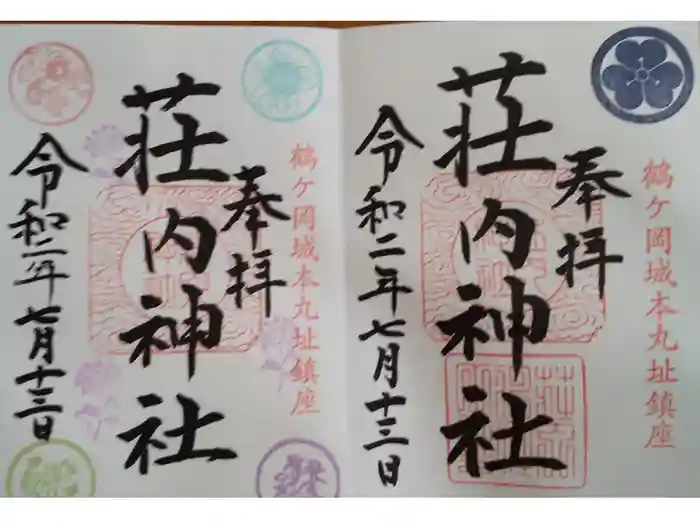 鶴ケ岡城本丸址鎮座
奉拝
荘内神社
令和二年七月十三日
鶴ケ岡城本丸址鎮座
奉拝
荘内神社
令和二年七月十三日